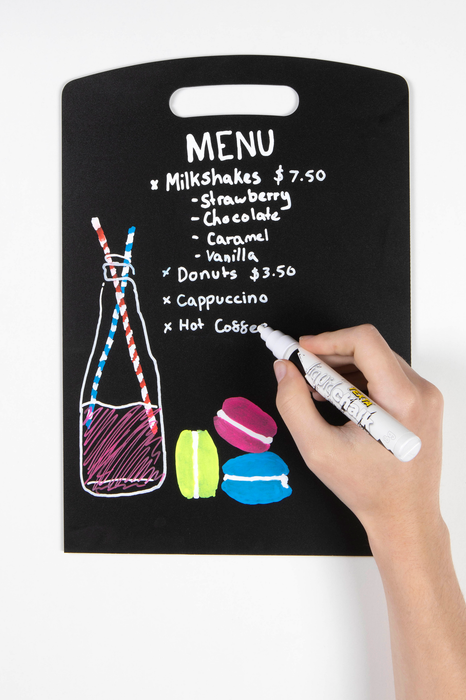 MENU
x Milkshakes $7.50
- Strawberry
- Chocolate
- Caramel
- Vanilla
x Donuts $3.50
x Cappuccino
x Hot Coffee
Liquid Chalk